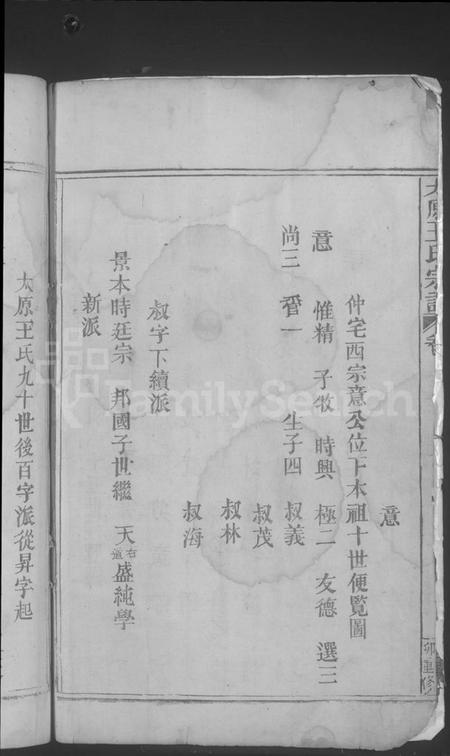 太原王氏宗譜 卷
卯重修
意
仲宅西宗意公位下本祖十世便覽圖
意 惟精 子牧 時興 極二 友德 選三
尚三 睿一 生子四 叔義
叔茂
叔林
叔海
叔字下續派
景本時廷宗 邦國子世繼 天右道盛純學
新派
太原王氏九十世後百字派從昇字起
FamilySearch